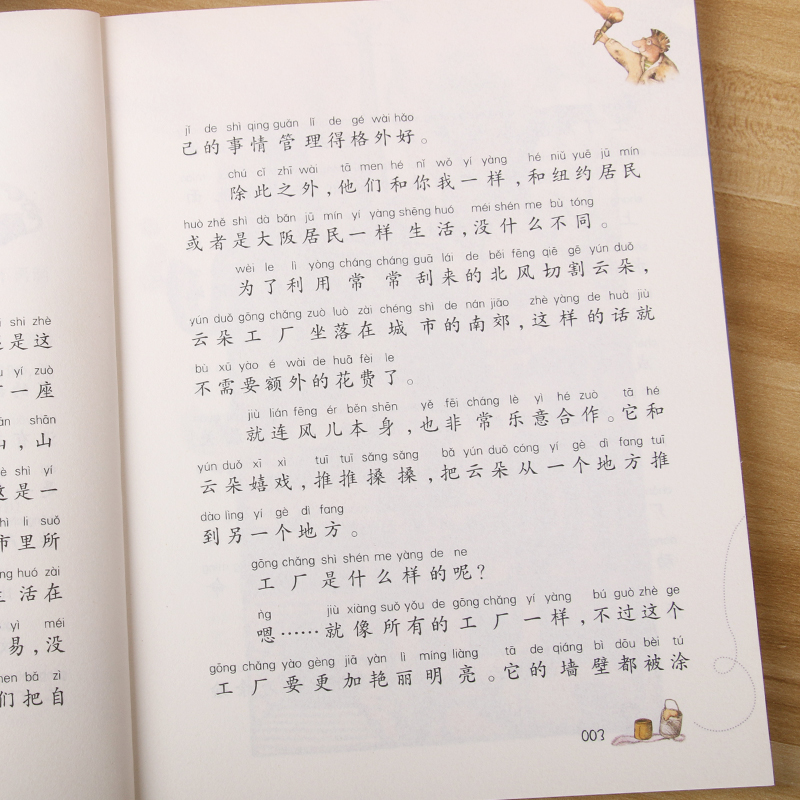 shì zhè
是这
yí zuò
一座
shān
山,山
shì yí
这是一
lǐ suǒ
市里所
huó zài
活在
yì méi
易,没
men bǎ zì
们把自
jǐ de shì qing guǎn lǐ de gé wài hǎo
己的事情管理得格外好。
chú cǐ zhī wài tā men hé nǐ wǒ yí yàng hé niǔ yuē jū mín
除此之外,他们和你我一样,和纽约居民
huò zhě shì dà bǎn jū mín yí yàng shēng huó méi shén me bù tóng
或者是大阪居民一样生活,没什么不同。
wèi le lì yòng cháng cháng guā lái de běi fēng qiē gē yún duǒ
为了利用常常刮来的北风切割云朵,
yún duǒ gōng chǎng zuò luò zài chéng shì de nán jiāo zhè yàng de huà jiù
云朵工厂坐落在城市的南郊,这样的话就
bù xū yào é wài de huā fèi le
不需要额外的花费了。
jiù lián fēng ér běn shēn yě fēi cháng lè yì hé zuò tā hé
就连风儿本身,也非常乐意合作。它和
yún duǒ xī xì tuī tuī sǎng sǎng bǎ yún duǒ cóng yí gè dì fang tuī
云朵嬉戏,推推搡搡,把云朵从一个地方推
dào lìng yí gè dì fang
到另一个地方。
gōng chǎng shì shén me yàng de ne
工厂是什么样的呢?
ǹg jiù xiàng suǒ yǒu de gōng chǎng yí yàng bú guò zhè ge
嗯……就像所有的工厂一样,不过这个
gōng chǎng yào gèng jiā yàn lì míng liàng tā de qiáng bì dōu bèi tú
工厂要更加艳丽明亮。它的墙壁都被涂
003